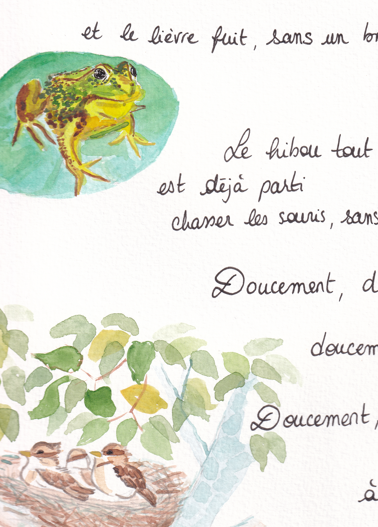 et le lièvre fuit, sans un
Le hibou tout
est déjà parti
chasser les souris, sans
Doucement, d
doucem
Doucement,
à